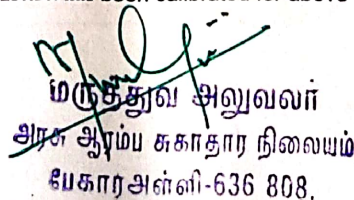 மருத்துவ அலுவலர்
அரசு ஆரம்ப சுகாதார நிலையம்
பேகாரஅள்ளி-636 808.